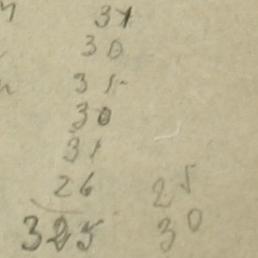 31
30
31
30
31
26 25
325 30